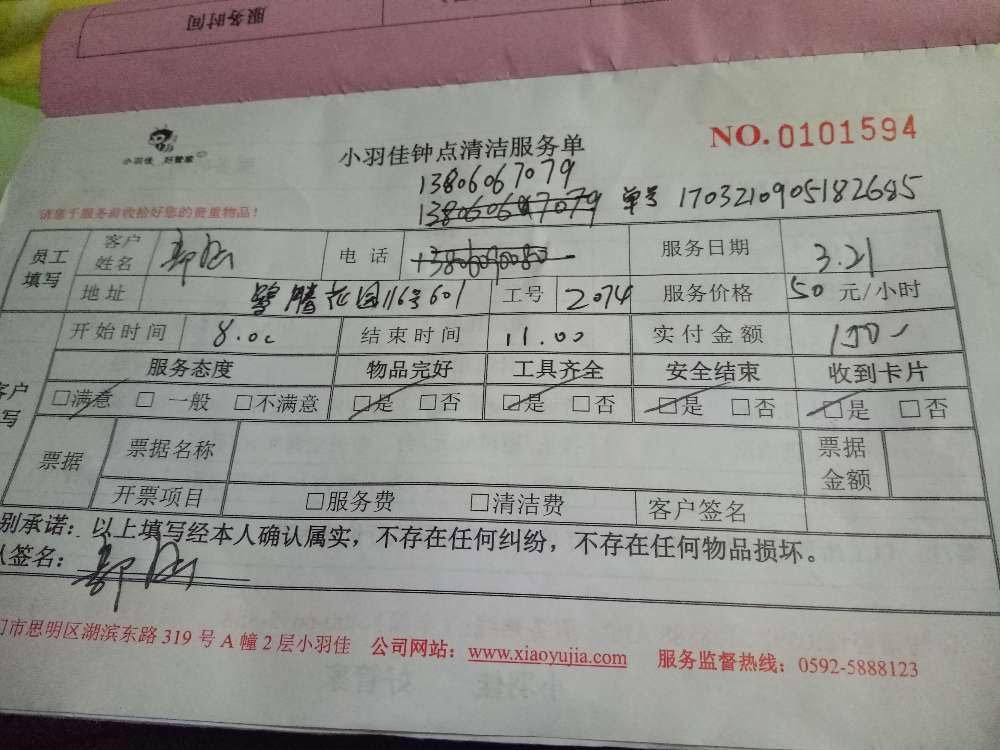 服务时间
小羽佳 好管家
小羽佳钟点清洁服务单
NO.0101594
13806067079
请您于服务前收拾好您的贵重物品!
单号 1703210905182685
员工填写 客户姓名 电话 服务日期 3.21
地址 鹭腾花园116号601 工号 2074 服务价格 50 元/小时
开始时间 8.00 结束时间 11.00 实付金额
服务态度 物品完好 工具齐全 安全结束 收到卡片
□满意 □一般 □不满意 □是 □否 □是 □否 □是 □否 □是 □否
票据 票据名称 票据金额
开票项目 □服务费 □清洁费 客户签名
别承诺：以上填写经本人确认属实，不存在任何纠纷，不存在任何物品损坏。
签名：
门市思明区湖滨东路 319 号 A 幢 2 层小羽佳 公司网站：www.xiaoyujia.com 服务监督热线：0592-5888123